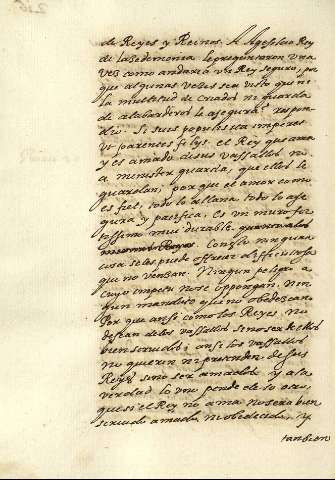 de Reyes y Reinos. A Agesilao Rey
de Lasedemonia le preguntaron una
vez como andaria un Rey seguro, por
que algunas veses se a visto que ni
la multitud de criados ni guarda
de alabarderos le asegura: respon
dio. Si suis populis ita imperet
ut parens filiis. el Rey que ama
y es amado de sus vassallos no
a menester guardia, que ellos le
guardan; por que el amor como
es fiel, todo lo allana todo lo ase
gura y pacifica. Es un muro for
tissimo mui durable.
Consilo ninguna
cosa se les puede ofresser al Rey
que no vensan. Ningun peligro a
cuyo impetu no se oppongan. Nin
gun mandato que no obedescan.
Por que ansi como los Reyes, no
desean de los vassallos sino ser de ellos
bien servidos; ansi los vassallos
no quieren ni pretenden de sus
Reyes sino ser amados y a la
verdad lo uno pende de lo otro,
que si el Rey no ama no sera bien
servido amado, ni obedecido, y
tanbien